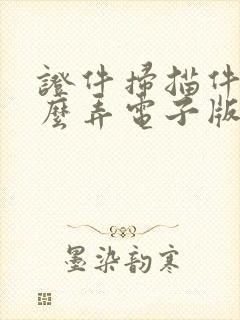 證件掃描件
麼弄電子版
墨染韵寒